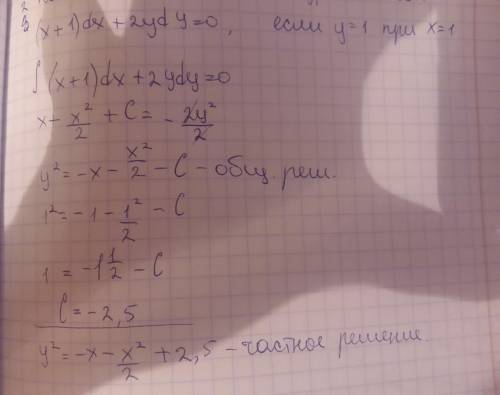 (x+1)dx + 2ydy=0, если y=1 при x=1
∫(x+1)dx + 2ydy=0
x + x²/2 + C = - 2y²/2
y² = -x - x²/2 - C - общ. реш.
1² = -1 - 1²/2 - C
1 = -1 1/2 - C
C = -2,5
y² = -x - x²/2 + 2,5 - частное решение.